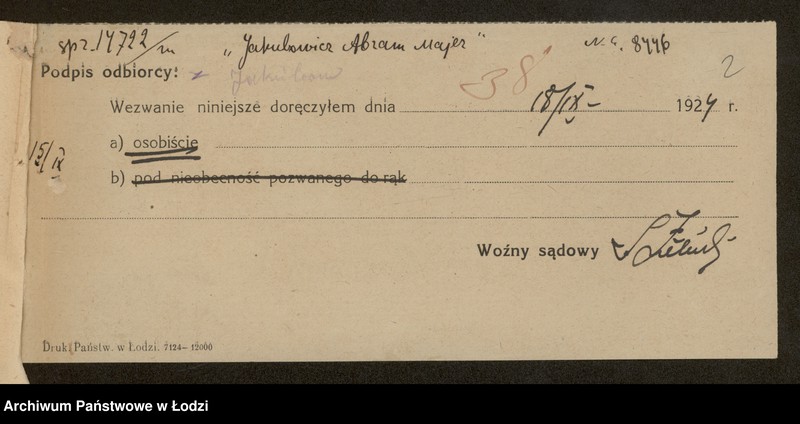 spr. 14722/m „Jakubowicz Abram Majer" N. G. 8446
Podpis odbiorcy:
38
2
Wezwanie niniejsze doręczyłem dnia 18/IX 1924 r.
a) osobiście
15/IX
b) pod nieobecność pozwanego do rąk
Woźny sądowy
Druk. Państw. w Łodzi. 7124—12000
Archiwum Państwowe w Łodzi